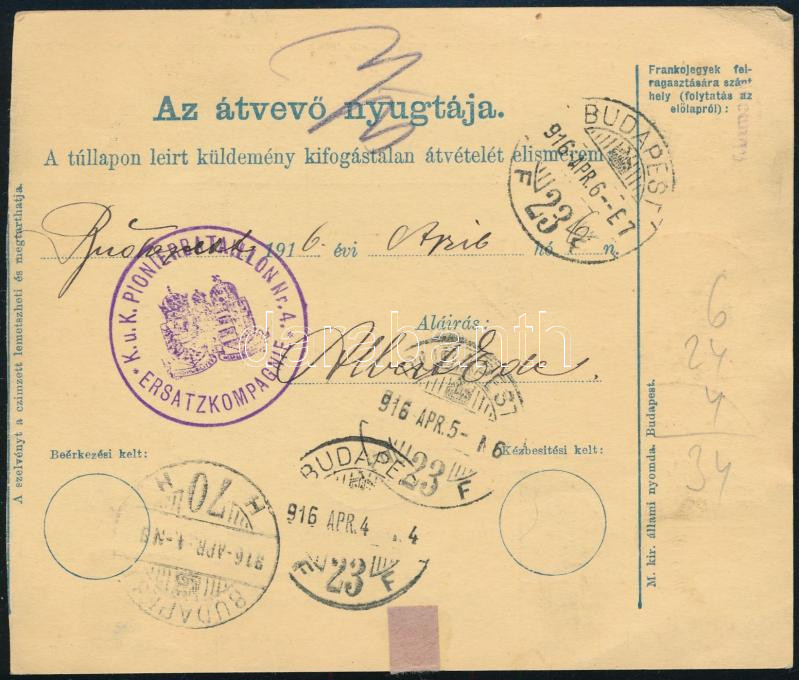 Frankojegyek fel-
ragasztására szánt
hely (folytatás az
előlapról):
Az átvevő nyugtája.
A túllapon leirt küldemény kifogástalan átvételét elismerem
Budapest, 1916. évi April hó n.
K.u.K. PIONIERBATAILLON Nr. 4.
* ERSATZKOMPAGNIE *
Aláirás:
Albert
darabanth
BUDAPEST
916 APR. 6 - E 7
23
F F
BUDAPEST
916 APR. 5 -
23 F
BUDAPE
916 APR. 4
23
F F
H 70 H
916 APR. 4 - N 8
BUDAPEST
Beérkezési kelt:
Kézbesitési kelt:
6
24
4
34
A szelvényt a czimzett lemetszheti és megtarthatja.
M. kir. állami nyomda. Budapest.